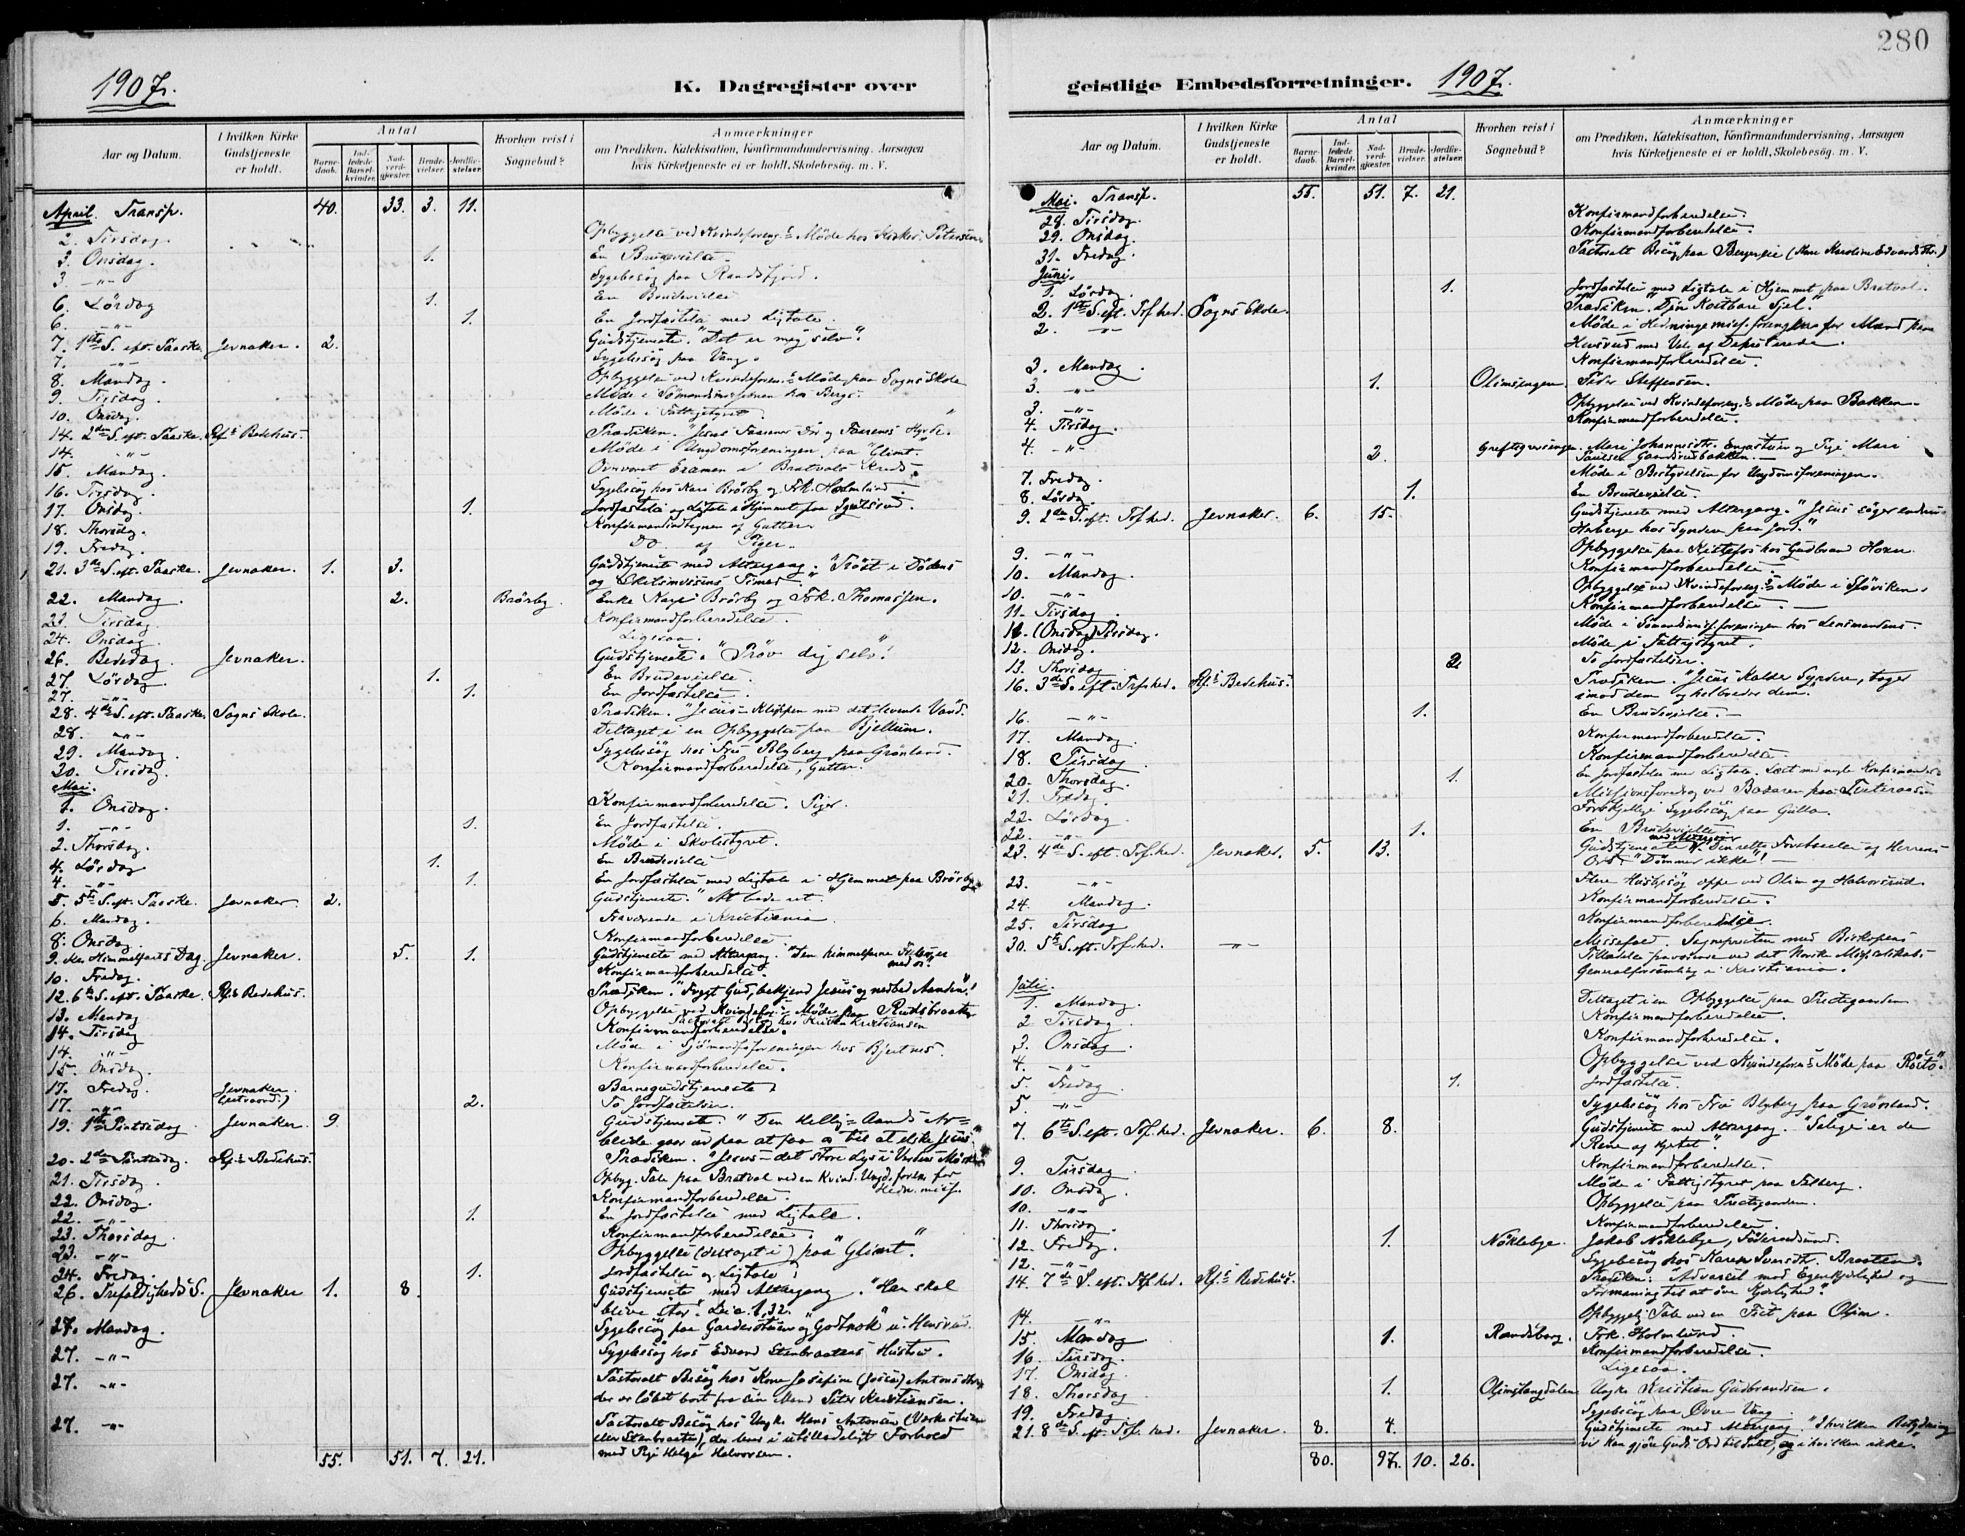 280
1907.
K. Dagregister over
geistlige Embedsforretninger. 1907.
Aar og Datum.
I hvilken Kirke Gudstjeneste er holdt.
Antal
Barnedaab.
Indledede Barselkvinder.
Nadverdgjæster.
Brudevielser.
Jordfæstelser.
Hvorhen reist i Sognebud?
Anmærkninger
om Prædiken, Katekisation, Konfirmandundervisning, Aarsagen
hvis Kirketjeneste ei er holdt, Skolebesøg. m. V.
April. Transp. 40. 33. 3. 11.
2. Tirsdag. Opbyggelse ved Kvindeforeng.s Møde hos Petersen
3. Onsdag. 1. En Brudevielse.
3. -"- Sygebesøg paa Randsfjord.
6. Lördag 1. En Brudevielse
6. -"- 1. En Jordfæstelse med Ligtale.
7. 1ste S. eft. Paaske. Jevnaker. 2. Gudstjeneste. "Det er mig selv".
7. -"- Sygebesøg paa Vang.
8. Mandag. Opbyggelse ved Kvindeforen.s Møde paa Sogns Skole
9. Tirsdag. Møde i Sömandsmissionen hos Berge.
10. Onsdag. Møde i Fattigstyret.
14. 2den S. eft. Paaske. Rf.s Bedehus. Prædiken. "Jesus Faarenes Dör og Faarenes Hyrde."
14. -"- Møde i Ungdomsforeningen paa "Glimt".
15. Mandag. Overværet Examen i Bratvals Kreds.
16. Tirsdag. Sygebesøg hos Kari Brörby og Frk. Holmlund.
17. Onsdag. 1. Jordfæstelse og Ligtale i Hjemmet paa
18. Thorsdag. Konfirmandindtegnen af Gutter.
19. Fredag. Do af Piger.
21. 3die S. eft. Paaske. Jevnaker. 1. 3. Gudstjeneste med Altergang. "Tröst i Dödens
og Skilsmissens Timer."
22. Mandag 2. Brörby. Enke Kari Brörby og Frk. Thomassen.
23. Tirsdag. Konfirmandforberedelse.
24. Onsdag. Ligesaa.
26. Bededag. Jevnaker. Gudstjeneste. "Pröv dig selv"!
27. Lördag. 1. En Brudevielse.
27. -"- 1. En Jordfæstelse.
28. 4de S. eft. Paaske. Sogns Skole. Prædiken. "Jesus - Klippen med det levende Vand.
28. -"- Deltaget i en Opbyggelse paa Bjellum.
29. Mandag. Sygebesøg hos Fru Blyberg paa Grönland.
30. Tirsdag. Konfirmandforberedelse, Gutter.
Mai.
1. Onsdag. Konfirmandforberedelse. Piger.
1. -"- 1. En Jordfæstelse.
2. Thorsdag. Møde i Skolestyret.
4. Lördag 1. En Brudevielse
4. -"- 1. En Jordfæstelse med Ligtale i Hjemmet paa Brörby
5. 5te S. eft. Paaske. Jevnaker. 2. Gudstjeneste. "At bede ret."
6. Mandag. Fraværende i Kristiania.
8. Onsdag Konfirmandforberedelse.
9. Kr. Himmelfarts Dag. Jevnaker. 5. 1. Gudstjeneste med Altergang. "Den himmelfarne Frelser er
med os".
10. Fredag. Konfirmandforberedelse.
12. 6te S. eft. Paaske. Rf.s Bedehus. Prædiken. "Frygt Gud, bekjend Jesus og nedbed Aanden!"
13. Mandag Opbyggelse ved Kvindefor.s Møde paa Rudsbraaten
14. Tirsdag Pastoralt Besøg hos Kristiansen
Konfirmandforberedelse.
14. -"- Møde i Sjömandsforeningen hos Bjertnes.
15. Onsdag. Konfirmandforberedelse.
17. Fredag. Jevnaker. Barnegudstjeneste.
17. -"- (extraord.) 2. To Jordfæstelser.
19. 1ste Pintsedag Jevnaker. 9 Gudstjeneste. "Den Hellig-Aands Ar=
beide gaar ud paa at faa os til at elske Jesus."
20. 2den Pintsedag. Rf.s Bedehus. Prædiken. "Jesus - det store Lys i Verdens Mörke
21. Tirsdag. Opbyg. Tale paa Bratval ved en Kvind. Ungd. foren. for
Hedn. miss.
22. Onsdag. Konfirmandforberedelse.
22. -"- 1. En Jordfæstelse med Ligtale.
23. Thorsdag. Konfirmandforberedelse.
23. -"- Opbyggelse (deltaget i) paa "Glimt".
24. Fredag. 1. Jordfæstelse og Ligtale.
26. Trefoldigheds S. Jevnaker 1. 8. Gudstjeneste med Altergang. "Han skal
blive stor". Luc. 1,32.
27. Mandag. Sygebesøg paa Garderstuen og "Godtnok" u. Hensrud.
27. -"- Sygebesøg hos Edvard Stenbraatens Hustru.
27. -"- Pastoralt Besøg hos Kone Josefine (Josie) Antonsdtr.
der er löbet bort fra sin Mand Peter Kristiansen.
27. -"- Pastoralt Besøg hos Ungk. Hans Antonsen (Værkestuen
eller Stenbraaten), der lever i utilladeligt Forhold
med Pige Helga Halvorsen.
55. 51. 7. 21.
Aar og Datum.
I hvilken Kirke Gudstjeneste er holdt.
Antal
Barnedaab.
Indledede Barselkvinder.
Nadverdgjæster.
Brudevielser.
Jordfæstelser.
Hvorhen reist i Sognebud?
Anmærkninger
om Prædiken, Katekisation, Konfirmandundervisning, Aarsagen
hvis Kirketjeneste ei er holdt, Skolebesøg. m. V.
Mai. Transp. 55. 51. 7. 21.
28. Tirsdag. Konfirmandforberedelse.
29. Onsdag. Konfirmandforberedelse.
31. Fredag. Pastoralt Besög paa Bergerseie (Karoline Edvardsdtr.)
Juni.
1. Lördag 1. Jordfæstelse med Ligtale i Hjemmet paa Bratval.
2. 1ste S. eft. Tref.hed. Sogns Skole. Prædiken. "Din kostbare Sjel."
2. -"- Møde i Hedningemiss.foreng for Mænd paa
Hensrud med Valg af Deputerede.
3. Mandag. Konfirmandforberedelse.
3. -"- 1. Olimsengen. Peder Steffensen.
3. -"- Opbyggelse ved Kvindeforeng.s Møde paa Bakken.
4. Tirsdag. Konfirmandforberedelse.
4. -"- 2. Mari Johannesdtr. og Pige Mari
Paulsen
7. Fredag. Møde i Bestyrelsen for Ungdomsforeningen.
8. Lördag. 1. En Brudevielse.
9. 2den S. eft. Tref.hed. Jevnaker. 6. 15. Gudstjeneste med Altergang. "Jesus söger endnu
Herberge hos Syndere paa Jord."
9. -"- Opbyggelse paa Kittefos hos Gudbrand Hoxer.
10. Mandag. Konfirmandforberedelse.
10. -"- Opbyggelse ved Kvindeforeng.s Møde i Sjöviken.
11. Tirsdag Konfirmandforberedelse.
11. (Onsdag) Tirsdag. Møde i Sömandsmiss.foreningen hos Lensmandens.
12. Onsdag. Møde i Fattigstyret.
13. Thorsdag 2. To Jordfæstelser.
16. 3die S. eft. Tref.hed. Rf.s Bedehus. Prædiken. "Jesus kalder Syndere, tager
imod dem og helbreder dem."
16. -"- 1. En Brudevielse.
17. Mandag. Konfirmandforberedelse.
18. Tirsdag Konfirmandforberedelse
20. Thorsdag. 1. En Jordfæstelse med Ligtale. Læst med nogle Konfirmander.
21. Fredag. Missionsforedrag ved Basaren paa
22. Lördag. Forskjellige Sygebesög paa Gulla.
22. -"- 1. En Brudevielse.
23. 4de S. eft. Tref.hed. Jevnaker. 5. 13. Gudstjeneste med Altergang. Den rette Forstaaelse af Herrens
Ord: "Dömmer ikke"!
23. -"- Flere Husbesög oppe ved Olim og Halvorsrud.
24. Mandag. Konfirmandforberedelse.
25. Tirsdag Konfirmandforberedelse
30. 5te S. eft. Tref.hed. -"- Messefald. Sognepresten med Biskopens
Tilladelse fraværende ved det Norske Miss.selskabs
Generalforsamling i Kristiania.
Juli.
1. Mandag. Deltaget i en Opbyggelse paa Prestegaarden
2. Tirsdag. Konfirmandforberedelse.
3. Onsdag. Konfirmandforberedelse.
4. -"- Opbyggelse ved Kvindeforen.s Møde paa "Røstö."
5. Fredag 1. Jordfæstelse.
5. -"- Sygebesög hos Fru Blyberg paa Grönland.
7. 6te S. eft. Tref.hed. Jevnaker. 6. 8. Gudstjeneste med Altergang. "Salige er de
Rene af Hjertet".
9. Tirsdag Konfirmandforberedelse.
10. Onsdag Møde i Fattigstyret paa Falberg.
10. -"- Opbyggelse paa Prestegaarden.
11. Thorsdag. Konfirmandforberedelse.
12. Fredag. 1. Nöklebye. Jakob Nöklebye, Föderaadsmand.
12. -"- Sygebesög hos Karen Iversdtr. Braaten.
14. 7de S. eft. Tref.hed. Rf.s Bedehus. Prædiken: "Advarsel mod Egenkjærlighed og
Formaning til at öve Kjærlighed."
14. -"- Opbyggelig Tale ved en Fest paa Olim.
15. Mandag 1. Randsborg. Frk. Holmlund.
16. Tirsdag. Konfirmandforberedelse.
17. Onsdag. Ligesaa.
18. Thorsdag 1. Olimslangdalen Ungk. Kristian Gudbrandsen.
19. Fredag Sygebesög paa Övre Vang.
21. 8de S. eft. Tref.hed. Jevnaker. 8. 4. Gudstjeneste med Altergang. "I hvilken Betydning
vi kan gjöre Guds Ord til Intet, og i hvilken ikke."
80. 97. 10. 26.